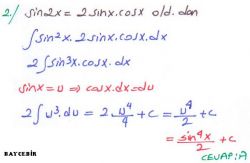 2./ sin2x = 2sinx.cosx old.dan
∫sin²x.2sinx.cosx.dx
2∫sin³x.cosx.dx
sinx = u ⇒ cosx.dx=du
2∫u³.du = 2.u⁴/4 + c = u⁴/2 + c
= sin⁴x/2 + c
CEVAP:A
BAYCEBİR